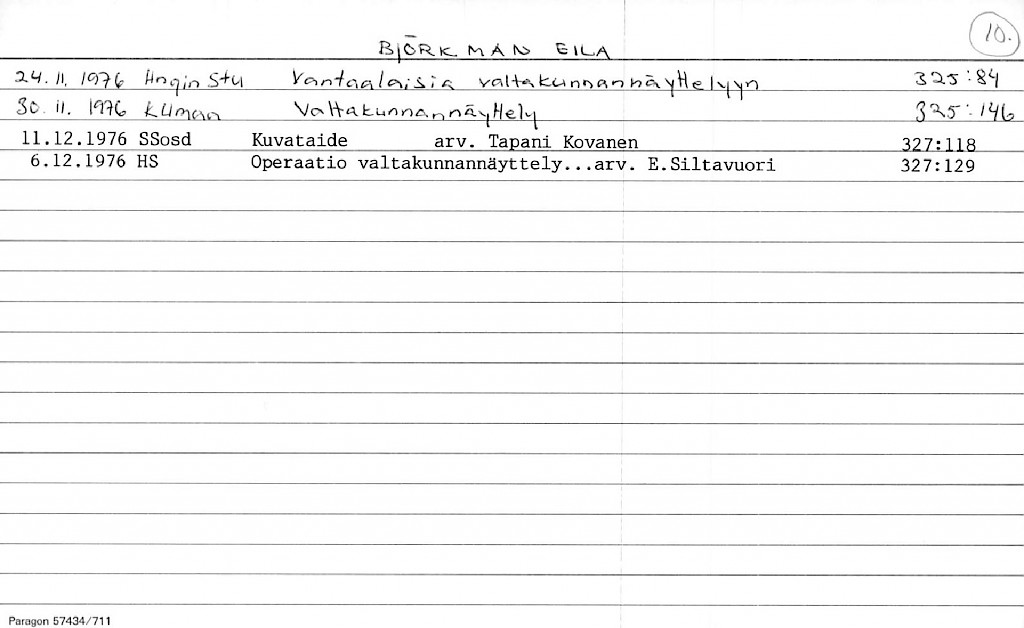 10.
BJÖRKMAN EILA
24.11.1976 Hngin Stu Vantaalaisia valtakunnannäyttelyyn 325:84
30.11.1976 KUman Valtakunnannäyttely 325:146
11.12.1976 SSosd Kuvataide arv. Tapani Kovanen 327:118
6.12.1976 HS Operaatio valtakunnannäyttely...arv. E.Siltavuori 327:129
Paragon 57434/711